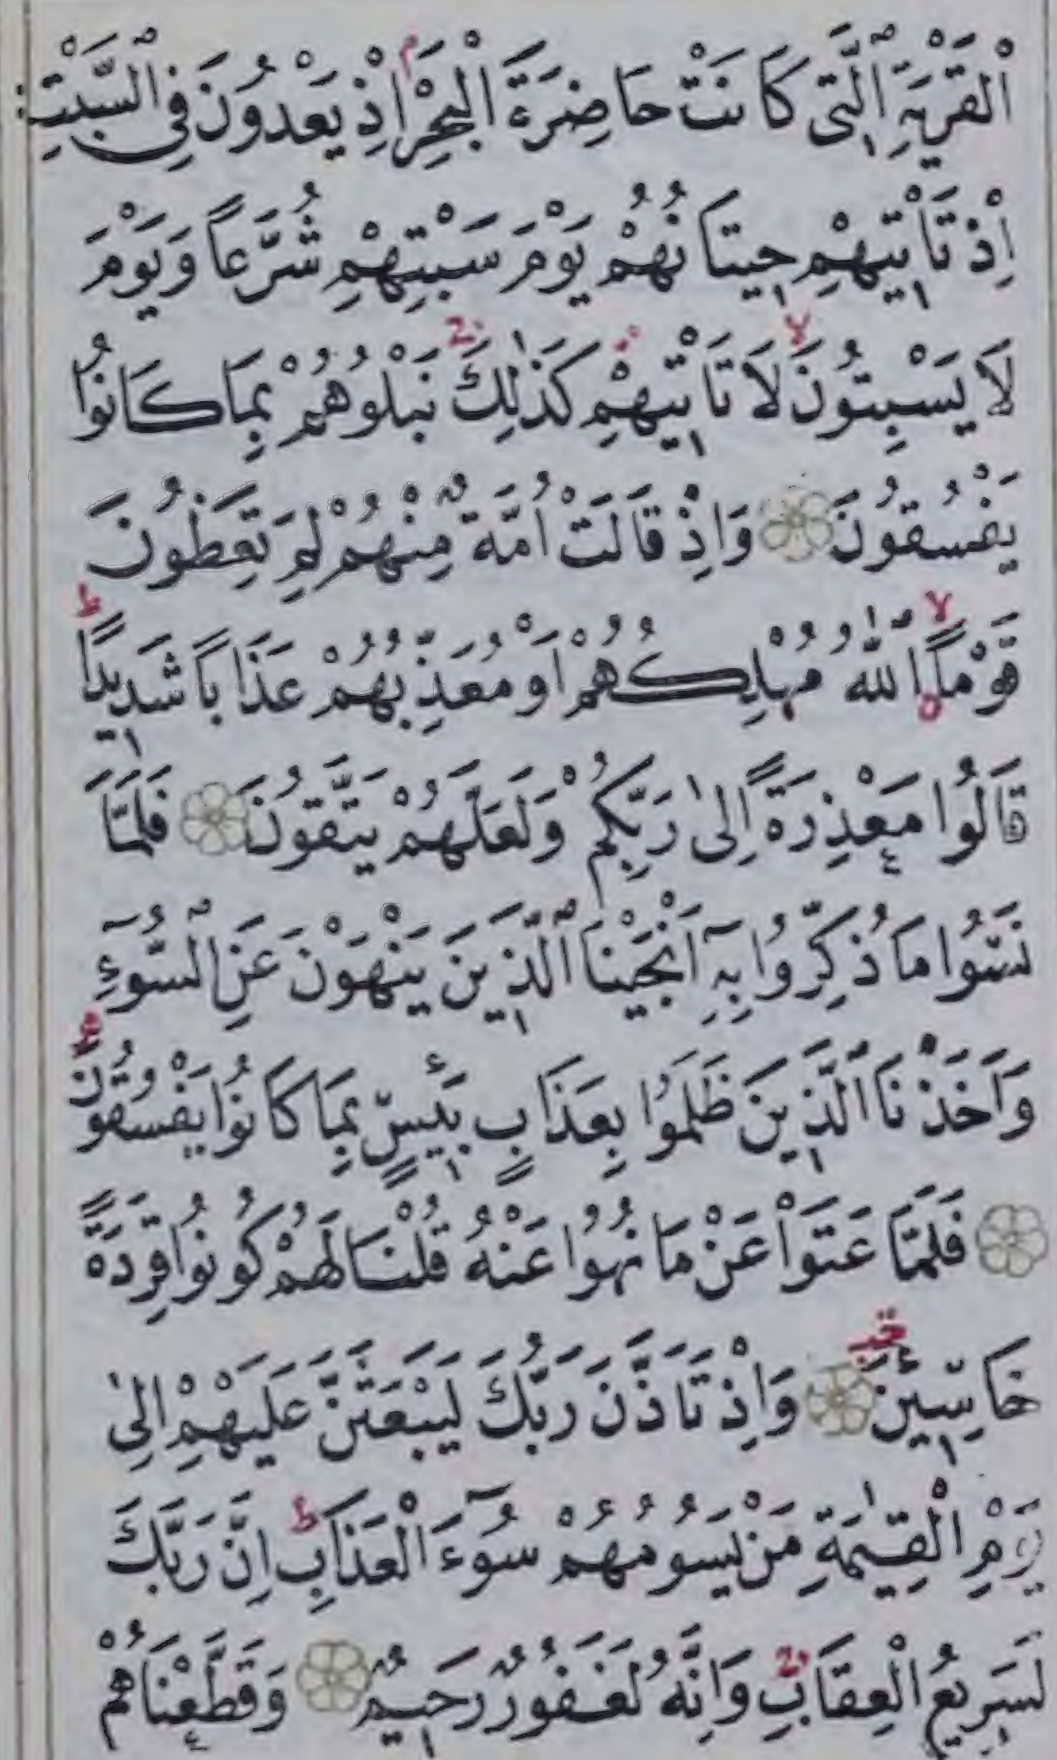 الْقَرْيَةِ الَّتِى كَانَتْ حَاضِرَةَ الْبَحْرِ اِذْ يَعْدُونَ فِى السَّبْتِ
اِذْ تَاْتِيهِمْ حِيتَانُهُمْ يَوْمَ سَبْتِهِمْ شُرَّعًا وَيَوْمَ
لَا يَسْبِتُونَ لَا تَاْتِيهِمْ كَذٰلِكَ نَبْلُوهُمْ بِمَا كَانُوا
يَفْسُقُونَ وَاِذْ قَالَتْ اُمَّةٌ مِنْهُمْ لِمَ تَعِظُونَ
قَوْمًا اللّٰهُ مُهْلِكُهُمْ اَوْ مُعَذِّبُهُمْ عَذَابًا شَدِيدًا
قَالُوا مَعْذِرَةً اِلٰى رَبِّكُمْ وَلَعَلَّهُمْ يَتَّقُونَ فَلَمَّا
نَسُوا مَا ذُكِّرُوا بِهِٓ اَنْجَيْنَا الَّذِينَ يَنْهَوْنَ عَنِ السُّوٓءِ
وَاَخَذْنَا الَّذِينَ ظَلَمُوا بِعَذَابٍ بَئِيسٍ بِمَا كَانُوا يَفْسُقُونَ
فَلَمَّا عَتَوْا عَنْ مَا نُهُوا عَنْهُ قُلْنَا لَهُمْ كُونُوا قِرَدَةً
خَاسِئِينَ وَاِذْ تَاَذَّنَ رَبُّكَ لَيَبْعَثَنَّ عَلَيْهِمْ اِلٰى
يَوْمِ الْقِيٰمَةِ مَنْ يَسُومُهُمْ سُوٓءَ الْعَذَابِ اِنَّ رَبَّكَ
لَسَرِيعُ الْعِقَابِ وَاِنَّهُ لَغَفُورٌ رَحِيمٌ وَقَطَّعْنَاهُمْ